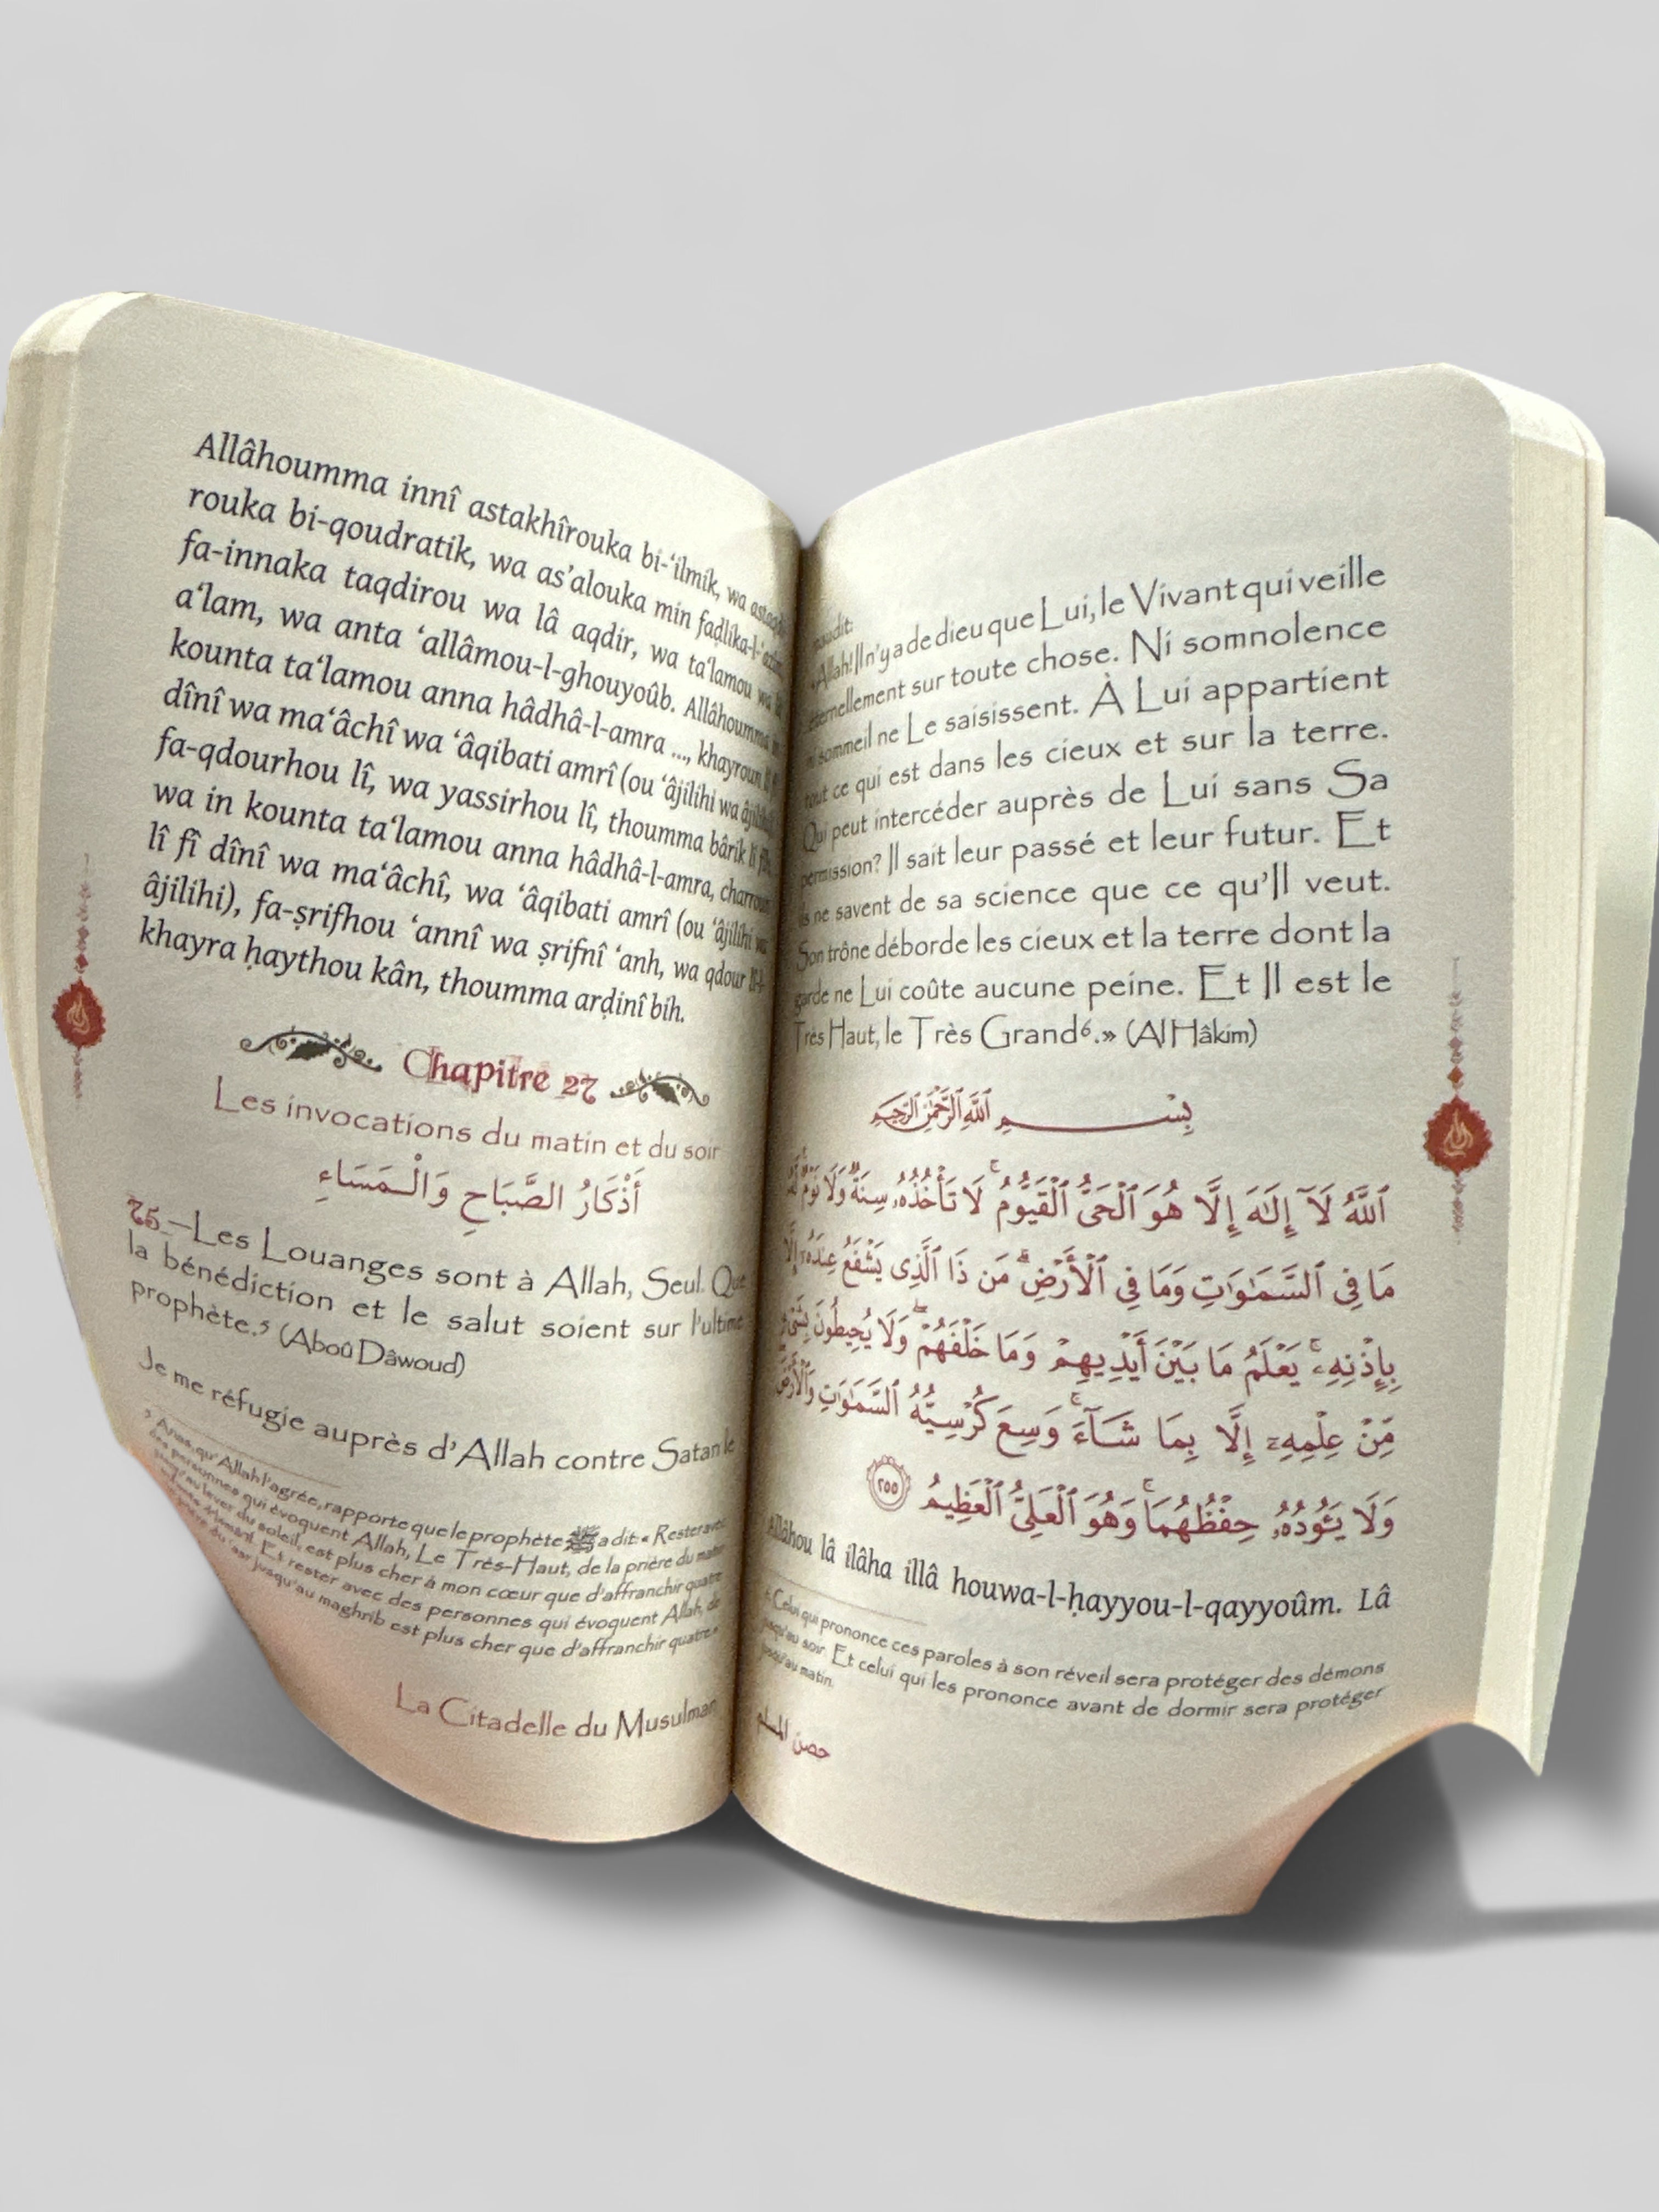 Allâhoumma innî astakhîrouka bi-‘ilmik, wa
rouka bi-qoudratik, wa as’alouka min faḍlika-l-
fa-innaka taqdirou wa lâ aqdir, wa ta‘lamou wa
a‘lam, wa anta ‘allâmou-l-ghouyoûb. Allâhoumma
kounta ta‘lamou anna hâdhâ-l-amra ..., khayroun
dînî wa ma‘âchî wa ‘âqibati amrî (ou ‘âjilihi wa
fa-qdourhou lî, wa yassirhou lî, thoumma bârik lî
wa in kounta ta‘lamou anna hâdhâ-l-amra,
lî fî dînî wa ma‘âchî, wa ‘âqibati amrî (ou ‘âjilihi wa
âjilihi), fa-ṣrifhou ‘annî wa ṣrifnî ‘anh, wa qdour
khayra ḥaythou kân, thoumma arḍinî bih.
Chapitre 27
Les invocations du matin et du soir
أَذْكَارُ الصَّبَاحِ وَالْـمَسَاءِ
75 – Les Louanges sont à Allah, Seul. Que
la bénédiction et le salut soient sur l’ultime
prophète.⁵ (Aboû Dâwoud)
Je me réfugie auprès d’Allah contre Satan le
⁵ Anas, qu’Allah l’agrée, rapporte que le prophète ﷺ a dit: « Rester avec
des personnes qui évoquent Allah, Le Très-Haut, de la prière du matin
jusqu’au lever du soleil, est plus cher à mon cœur que d’affranchir quatre
Et rester avec des personnes qui évoquent Allah, de
jusqu’au maghrib est plus cher que d’affranchir quatre.»
La Citadelle du Musulman
maudit:
«Allah! Il n’y a de dieu que Lui, le Vivant qui veille
éternellement sur toute chose. Ni somnolence
ni sommeil ne Le saisissent. À Lui appartient
tout ce qui est dans les cieux et sur la terre.
Qui peut intercéder auprès de Lui sans Sa
permission? Il sait leur passé et leur futur. Et
ils ne savent de sa science que ce qu’Il veut.
Son trône déborde les cieux et la terre dont la
garde ne Lui coûte aucune peine. Et Il est le
Très Haut, le Très Grand⁶.» (Al Hâkim)
بِسْـــــمِ ٱللَّهِ ٱلرَّحْمَٰنِ ٱلرَّحِيمِ
ٱللَّهُ لَآ إِلَٰهَ إِلَّا هُوَ ٱلْحَىُّ ٱلْقَيُّومُ ۚ لَا تَأْخُذُهُۥ سِنَةٌ وَلَا نَوْمٌ ۚ لَّهُۥ
مَا فِى ٱلسَّمَٰوَٰتِ وَمَا فِى ٱلْأَرْضِ ۗ مَن ذَا ٱلَّذِى يَشْفَعُ عِندَهُۥٓ إِلَّا
بِإِذْنِهِۦ ۚ يَعْلَمُ مَا بَيْنَ أَيْدِيهِمْ وَمَا خَلْفَهُمْ ۖ وَلَا يُحِيطُونَ بِشَىْءٍ
مِّنْ عِلْمِهِۦٓ إِلَّا بِمَا شَآءَ ۚ وَسِعَ كُرْسِيُّهُ ٱلسَّمَٰوَٰتِ وَٱلْأَرْضَ
وَلَا يَـُٔودُهُۥ حِفْظُهُمَا ۚ وَهُوَ ٱلْعَلِىُّ ٱلْعَظِيمُ ٢٥٥
Allâhou lâ ilâha illâ houwa-l-ḥayyou-l-qayyoûm. Lâ
⁶ Celui qui prononce ces paroles à son réveil sera protéger des démons
jusqu’au soir. Et celui qui les prononce avant de dormir sera protéger
jusqu’au matin.
حصن المسلم